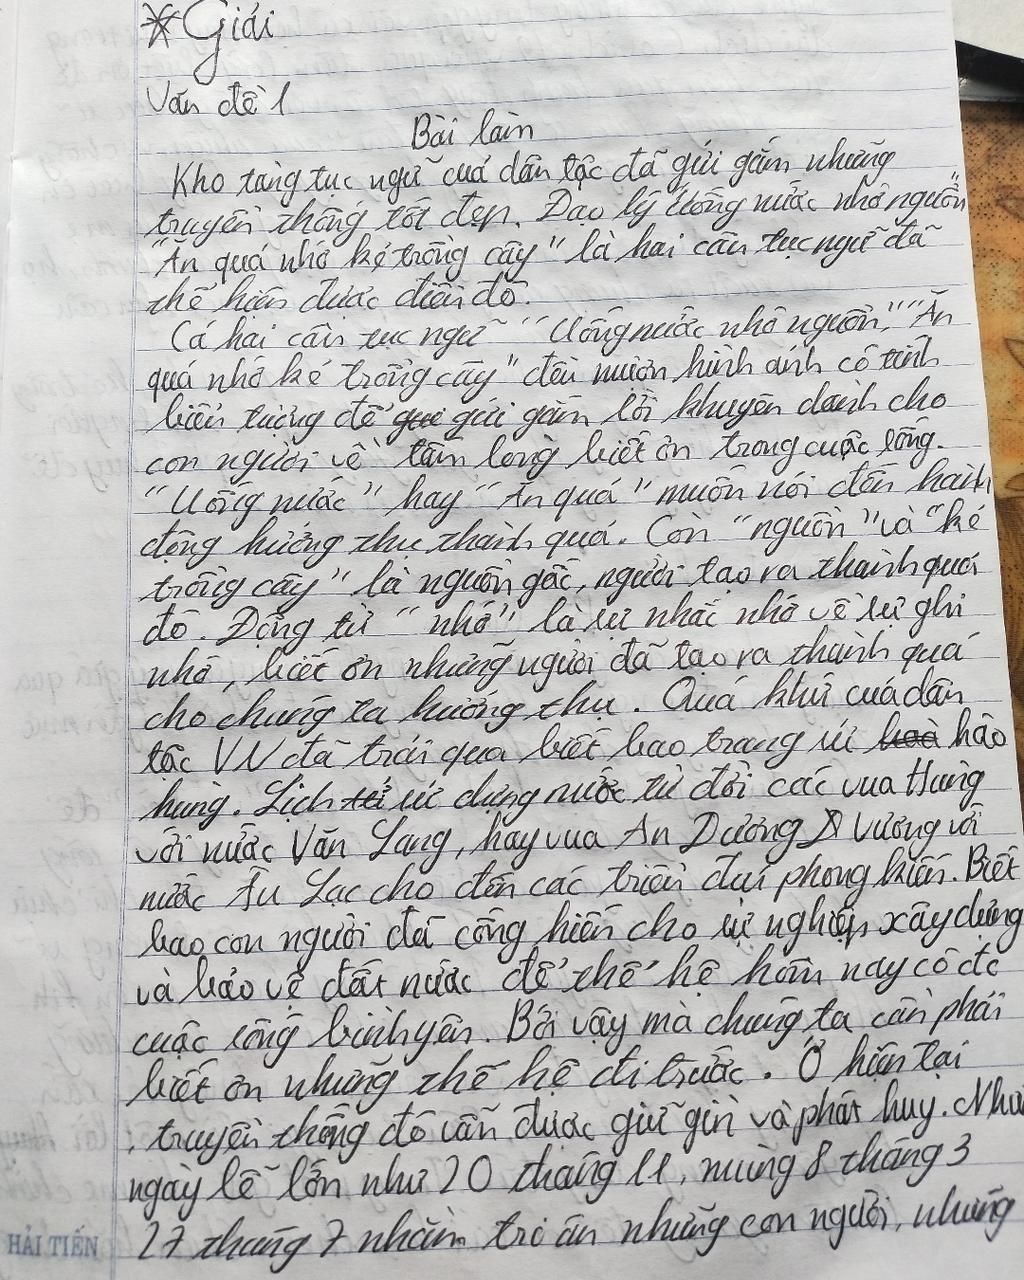 * Giải
Vấn đề 1
Bài làm
Kho tàng tục ngữ của dân tộc đã gửi gắm những
truyền thống tốt đẹp. Đạo lý Uống nước nhớ nguồn"
"Ăn quả nhớ kẻ trồng cây" là hai câu tục ngữ đã
thể hiện được điều đó.
Cả hai câu tục ngữ "Uống nước nhớ nguồn," "Ăn
quả nhớ kẻ trồng cây" đều mượn hình ảnh có tính
biểu tượng để gửi gắm lời khuyên dành cho
con người về tấm lòng biết ơn trong cuộc sống.
"Uống nước" hay "Ăn quả" muốn nói đến hành
động hưởng thụ thành quả. Còn "nguồn" và "kẻ
trồng cây" là nguồn gốc, người tạo ra thành quả
đó. Động từ "nhớ" là sự nhắc nhở về sự ghi
nhớ, biết ơn những người đã tạo ra thành quả
cho chúng ta hưởng thụ. Quá khứ của dân
tộc VN đã trải qua biết bao trang sử hào
hùng. Lịch sử dựng nước từ đời các vua Hùng
với nước Văn Lang, hay vua An Dương Vương với
nước Âu Lạc cho đến các triều đại phong kiến. Biết
bao con người đã cống hiến cho sự nghiệp xây dựng
và bảo vệ đất nước để thế hệ hôm nay có đc
cuộc sống bình yên. Bởi vậy mà chúng ta cần phải
biết ơn những thế hệ đi trước. Ở hiện tại
, truyền thống đó vẫn được giữ gìn và phát huy. Như
ngày lễ lớn như 20 tháng 11, mùng 8 tháng 3
27 tháng 7 nhằm tri ân những con người, những
HẢI TIẾN